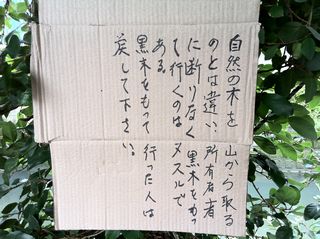 自然の木を山から取る
のとは違い、所有者者
に断りなく黒木をもっ
て行くのはヌスルで
ある。
黒木をもって行った人は
戻して下さい。